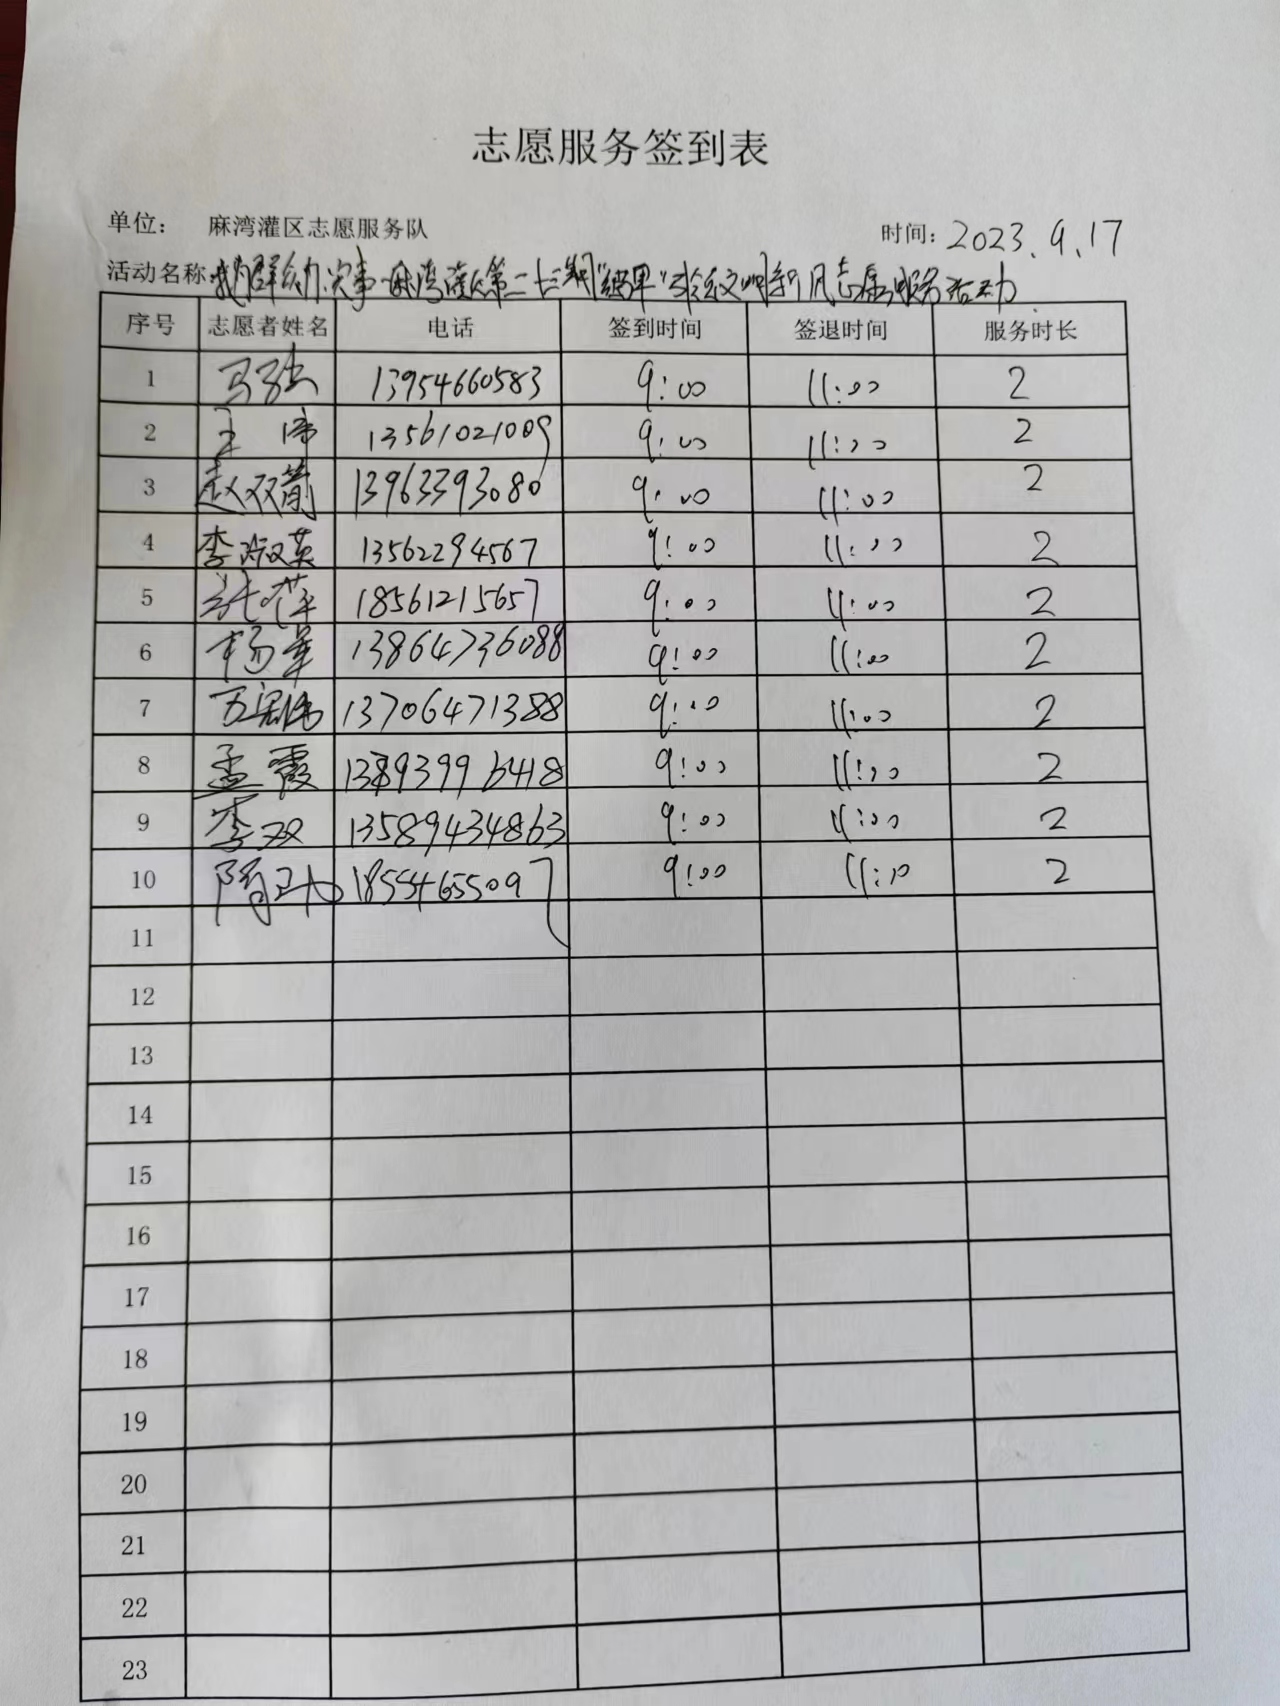 志愿服务签到表
单位： 麻湾灌区志愿服务队 时间：2023.9.17
活动名称：我为群众办实事 麻湾灌区第二十三期 文明新风志愿服务活动
序号 志愿者姓名 电话 签到时间 签退时间 服务时长
1 马强 13954660583 9:00 11:00 2
2 王 13561021009 9:00 11:00 2
3 赵双箭 13963393080 9:00 11:00 2
4 李淑英 13562294567 9:00 11:00 2
5 张萍 18561215657 9:00 11:00 2
6 杨军 13864736088 9:00 11:00 2
7 13706471388 9:00 11:00 2
8 孟霞 9:00 11:00 2
9 李双 13589434863 9:00 11:00 2
10 隋 18554655097 9:00 11:00 2
11
12
13
14
15
16
17
18
19
20
21
22
23